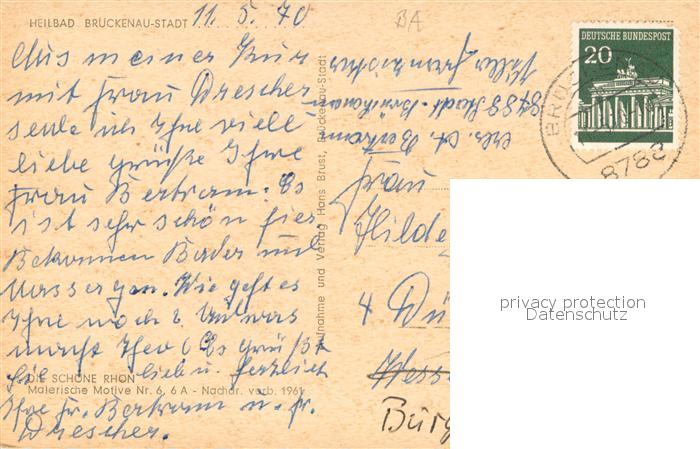 HEILBAD BRÜCKENAU-STADT 11. 5. 70
BA
Aus meiner Kur
mit Frau Drescher
sende ich Ihne viell
liebe Grüße Ihre
Frau Bertram. Es
ist sehr schön hier
Bekommen Bäder und
Massergen. Wie geht es
Ihne noch? Und was
macht Theo? Es grüßt
Sie lieb u. herzlich
DIE SCHÖNE RHÖN
Malerische Motive Nr. 6, 6 A - Nachdr. verb. 1961
Ihre Fr. Bertram u. Fr.
Drescher.
Aufnahme und Verlag Hans Brust, Brückenau-Stadt
Abs. A. Bertram
8788 Stadt-Brückenau
DEUTSCHE BUNDESPOST
20
8788
Frau
Hilde
4 Dü
Burg
privacy protection
Datenschutz